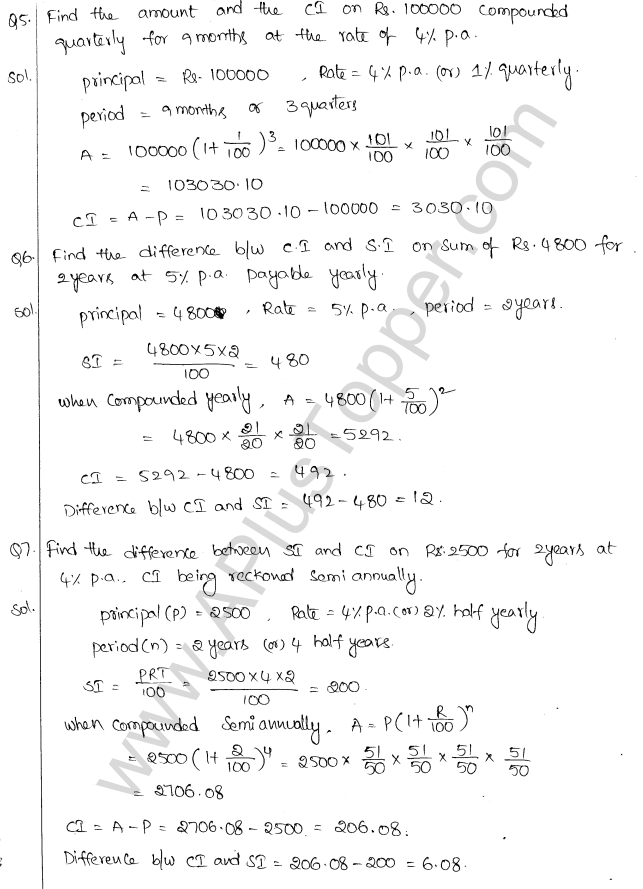 Q5. Find the amount and the CI on Rs. 100000 compounded
quarterly for 9months at the rate of 4% p.a.
Sol. principal = Rs- 100000 , Rate = 4% p.a. (or) 1% quarterly.
period = 9months or 3quarters
A = 100000(1+ 1/100)^3 = 100000 × 101/100 × 101/100 × 101/100
= 103030.10
CI = A-P = 103030.10 - 100000 = 3030.10
Q6. Find the difference b/w C.I and S.I on sum of Rs.4800 for
2years at 5% p.a. payable yearly.
Sol. principal = 4800 , Rate = 5% p.a. , period = 2years.
SI = 4800×5×2/100 = 480
When compounded yearly, A = 4800(1+ 5/100)^2
= 4800 × 21/20 × 21/20 = 5292.
CI = 5292 - 4800 = 492.
Difference b/w CI and SI = 492-480 = 12.
Q7. Find the difference between SI and CI on Rs.2500 for 2years at
4% p.a.. CI being reckoned semi annually.
Sol. principal(P) = 2500 , Rate = 4% p.a.(or) 2% half yearly
period(n) = 2 years (or) 4 half years.
SI = PRT/100 = 2500×4×2/100 = 200.
When compounded Semiannually, A = P(1+ R/100)^n
= 2500(1+ 2/100)^4 = 2500× 51/50 × 51/50 × 51/50 × 51/50
= 2706.08
CI = A-P = 2706.08 - 2500 = 206.08.
Difference b/w CI and SI = 206.08-200 = 6.08.
www.APlusTopper.com